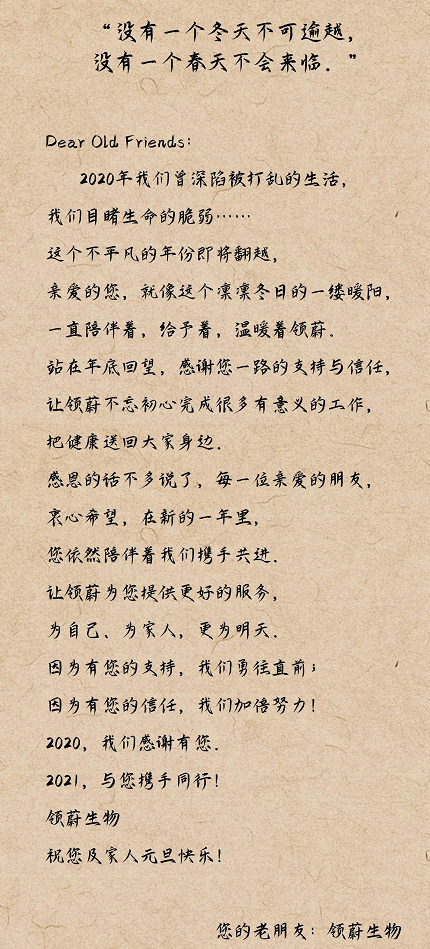 “没有一个冬天不可逾越，
没有一个春天不会来临．”
Dear Old Friends：
2020年我们曾深陷被打乱的生活，
我们目睹生命的脆弱……
这个不平凡的年份即将翻越，
亲爱的您，就像这个凛凛冬日的一缕暖阳，
一直陪伴着，给予着，温暖着领蔚．
站在年底回望，感谢您一路的支持与信任，
让领蔚不忘初心完成很多有意义的工作，
把健康送回大家身边．
感恩的话不多说了，每一位亲爱的朋友，
衷心希望，在新的一年里，
您依然陪伴着我们携手共进．
让领蔚为您提供更好的服务，
为自己、为家人，更为明天．
因为有您的支持，我们勇往直前；
因为有您的信任，我们加倍努力！
2020，我们感谢有您．
2021，与您携手同行！
领蔚生物
祝您及家人元旦快乐！
您的老朋友：领蔚生物